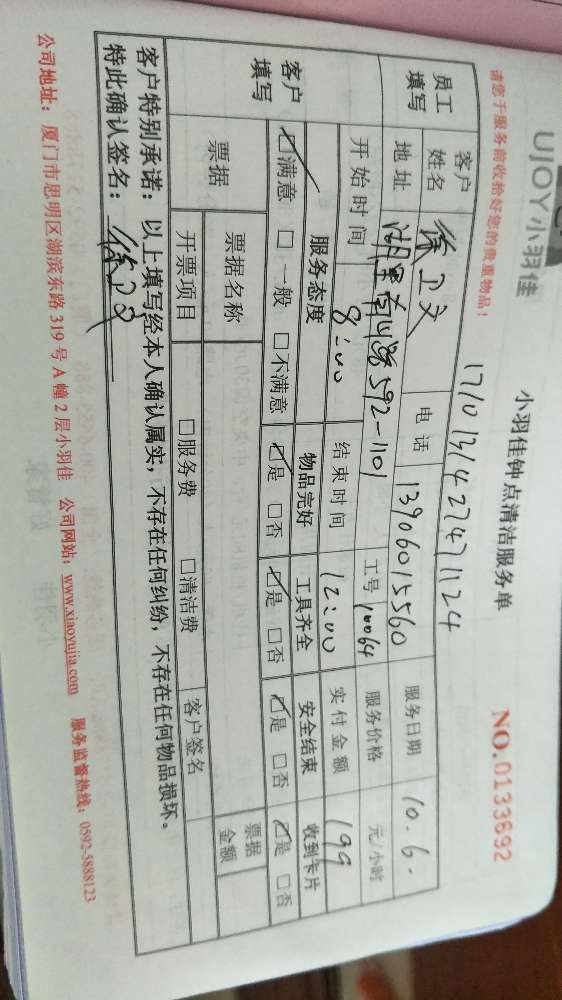 UJOY小羽佳
小羽佳钟点清洁服务单
请您于服务前收拾好您的贵重物品!
1710131427471124
NO.0133692
员工填写
客户姓名 徐卫文 电话 13906015560 服务日期 10.6.
地址 592-1101 工号 10064 服务价格 元/小时
开始时间 8:00 结束时间 12:00 实付金额 199
客户填写
服务态度 物品完好 工具齐全 安全结束 收到卡片
☑满意 □一般 □不满意 ☑是 □否 ☑是 □否 ☑是 □否 ☑是 □否
票据 票据名称 票据金额
开票项目 □服务费 □清洁费 客户签名
客户特别承诺:以上填写经本人确认属实,不存在任何纠纷,不存在任何物品损坏。
特此确认签名:徐卫文
公司地址:厦门市思明区湖滨东路319号A幢2层小羽佳 公司网站:www.xiaoyujia.com 服务监督热线:0592-5888123